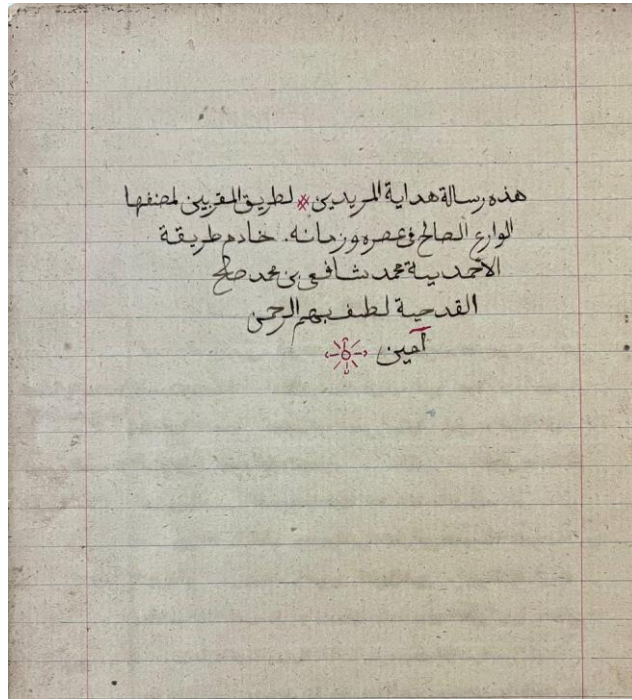 هذه رسالة هداية المريدين لطريق المقربين لمصنفها
الوارع الصالح في عصره وزمانه. خادم طريقة
الأحمدية محمد شافعي بن محمد صالح
القدحية لطف بهم الرحمن
آمين